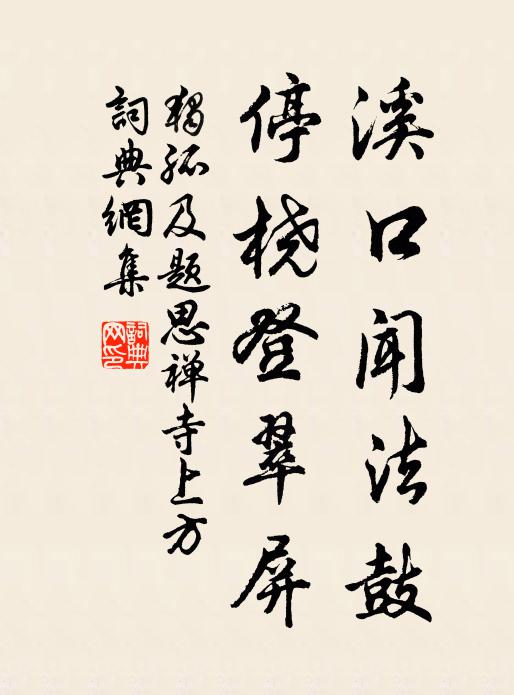 溪口闻法鼓
停桡登翠屏
独孤及题思禅寺上方
詞典網集
詞典网印